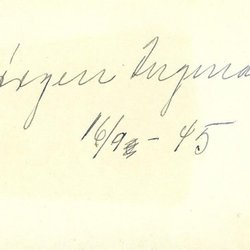 ørgen Ingma
16/9 - 45